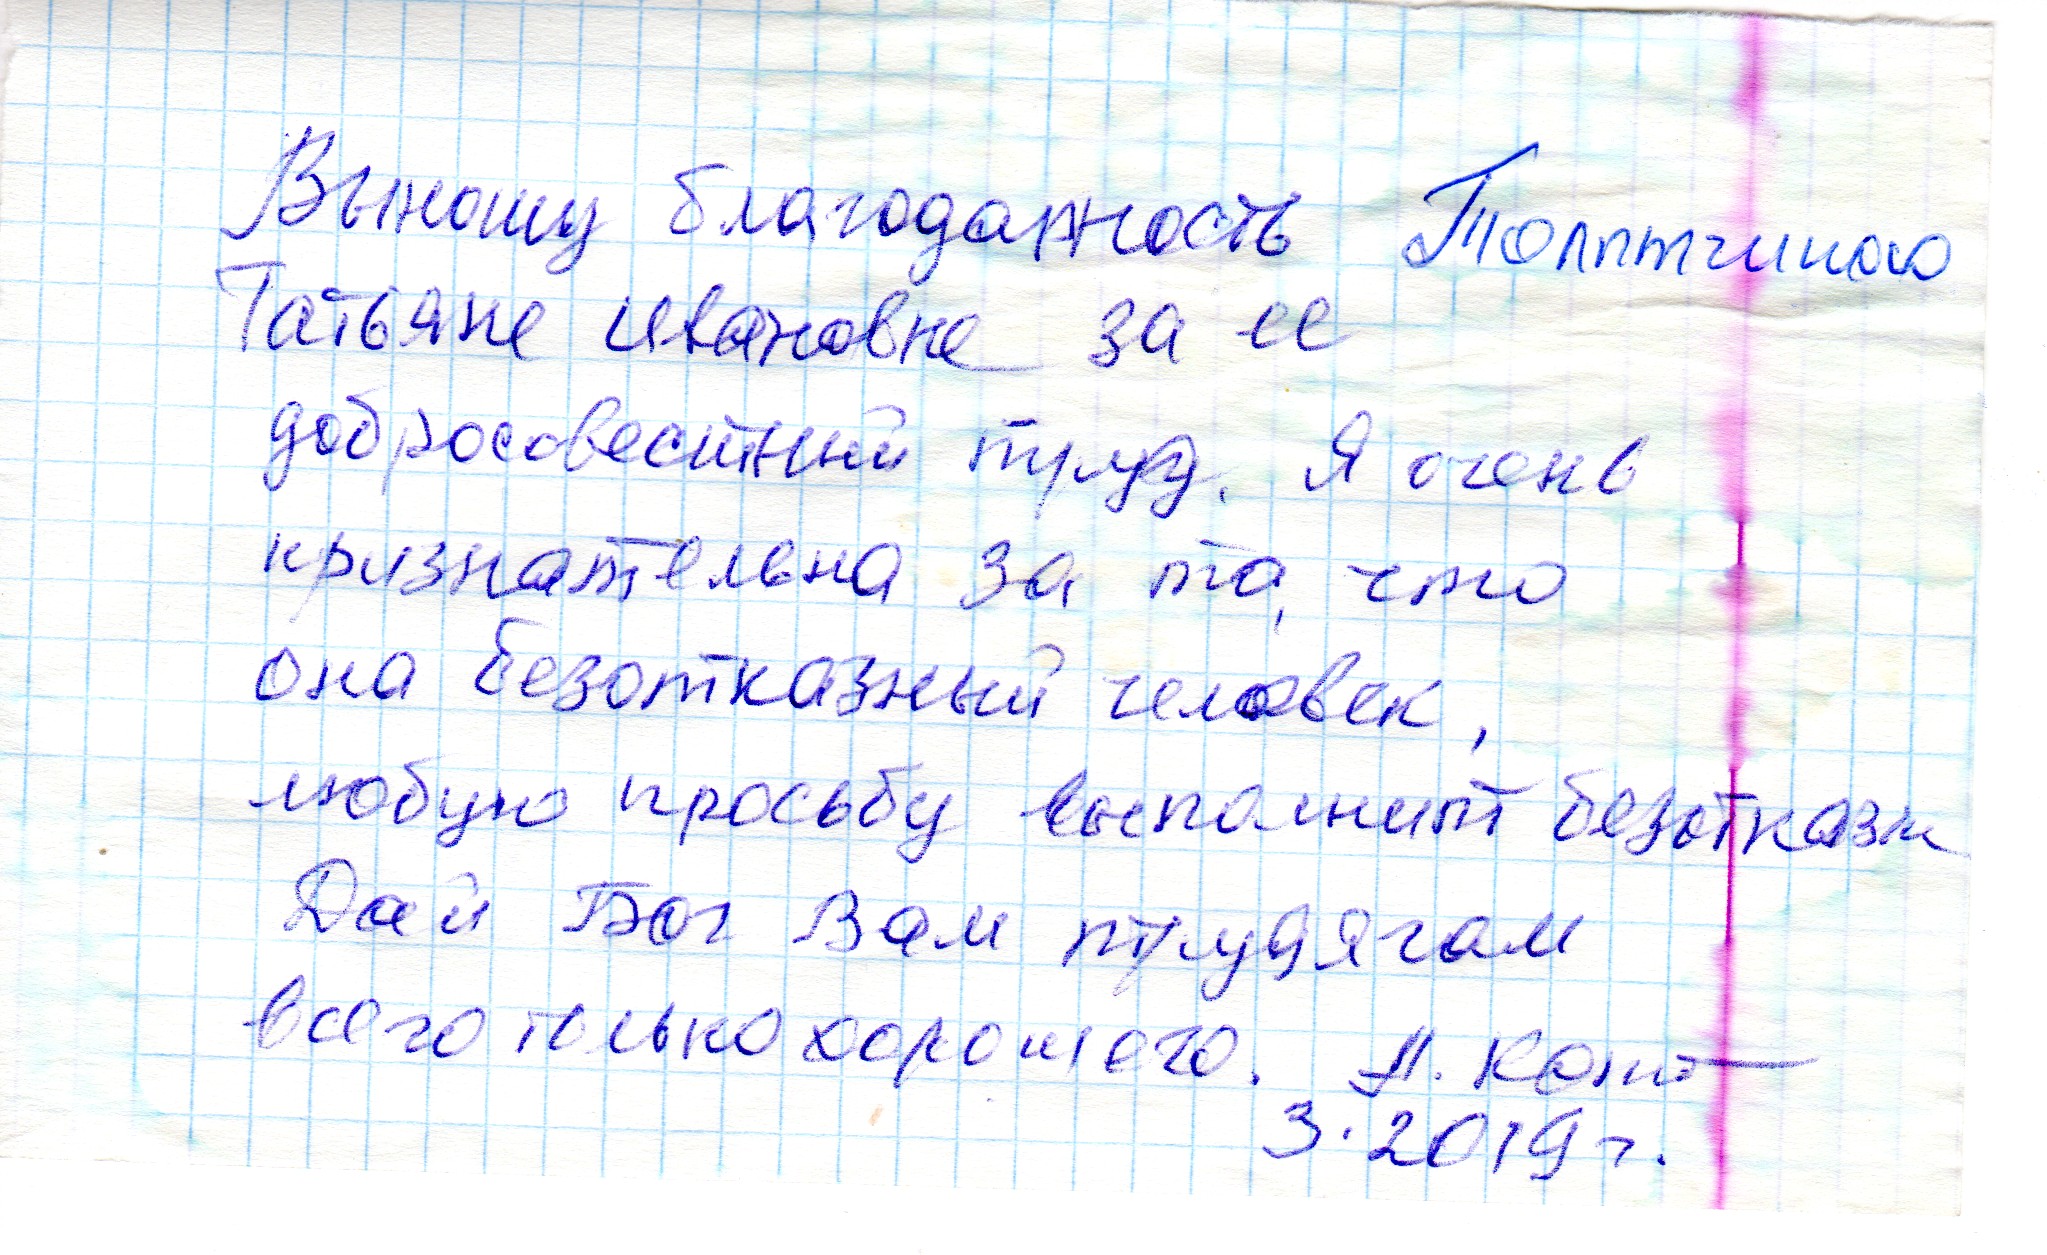 Выношу благодарность
Татьяне Ивановне за ее
добросовестный труд. Я очень
признательна за то, что
она безотказный человек,
любую просьбу выполнит безотказн
Дай Бог Вам трудягам
всего только хорошего.
3.2019 г.